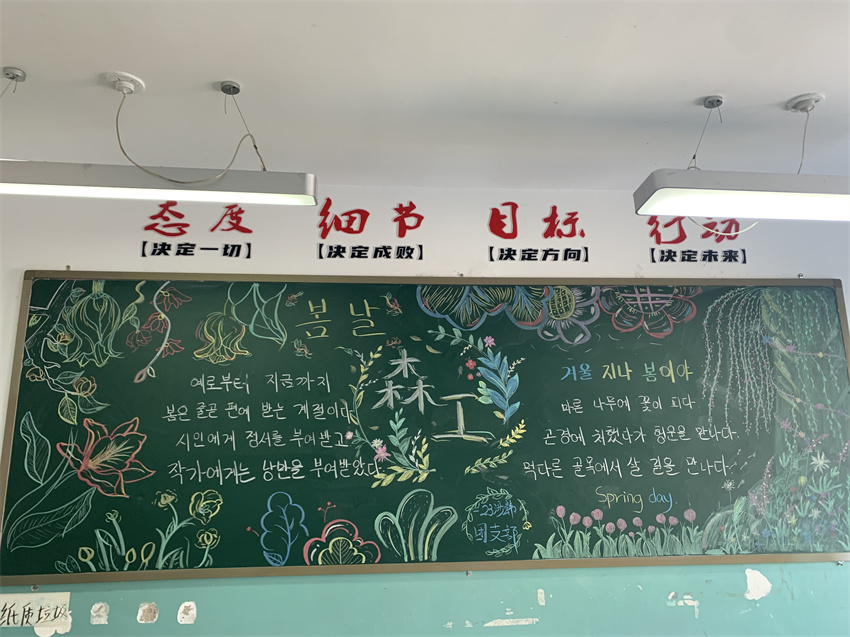 态度 细节 目标 行动
【决定一切】 【决定成败】 【决定方向】 【决定未来】
봄날
예로부터 지금까지
봄은 줄곧 편애 받는 계절이다
시인에게 전서를 부여받고
작가에게는 낭만을 부여받았다.
森工
23涉韩
团支部
겨울 지나 봄이야
마른 나무에 꽃이 피다
곤경에 처했다가 행운을 만나다.
막다른 골목에서 살 길을 만나다.
Spring day
纸质垃圾